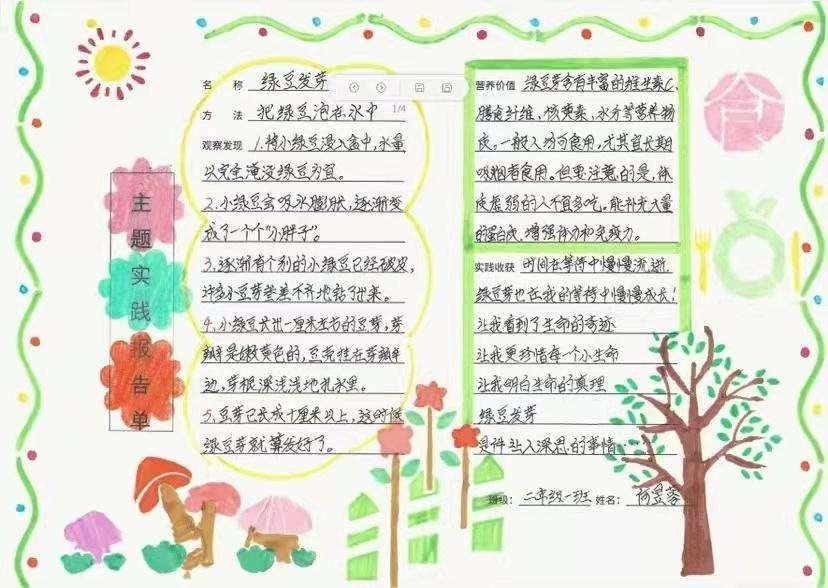 主题实践报告单
名 称 绿豆发芽
1/4
方 法 把绿豆泡在水中
观察发现 1.将小绿豆浸入盆中,水量
以完全淹没绿豆为宜。
2.小绿豆会吸水膨胀,逐渐变
成了一个个"小胖子"。
3.逐渐有个别的小绿豆已经破皮,
许多小豆芽参差不齐地钻了出来。
4.小绿豆长出一厘米左右的豆芽,芽
瓣是嫩黄色的,豆壳挂在芽瓣半
边,芽根深深浅浅地扎水里。
5.豆芽已长成十厘米以上,这时候
绿豆芽就算发好了。
营养价值 绿豆芽含有丰富的维生素C、
膳食纤维,核黄素,水分等营养物
质。一般人均可食用,尤其宜长期
吸烟者食用。但要注意的是,体
质虚弱的人不宜多吃。能补充大量
的蛋白质,增强体力和免疫力。
实践收获 时间在等待中慢慢流逝,
绿豆芽也在我的等待中慢慢成长!
让我看到了生命的奇迹
让我更珍惜每一个小生命
让我明白生命的真理
绿豆发芽
是件让人深思的事情……
班级: 二年级一班 姓名: 何昱蓉
合